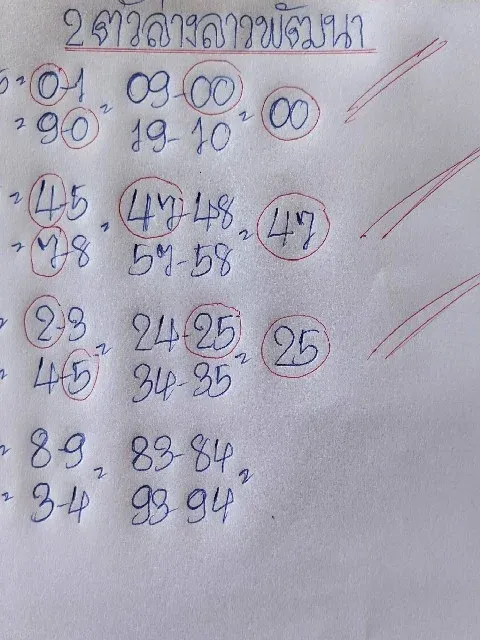 2ตัวล่างลาวพัฒนา
= 0-1 = 09-00 = 00
= 9-0 19-10
= 4-5 = 47-48 = 47
= 7-8 57-58
= 2-3 = 24-25 = 25
= 4-5 34-35
= 8-9 = 83-84 =
= 3-4 93-94